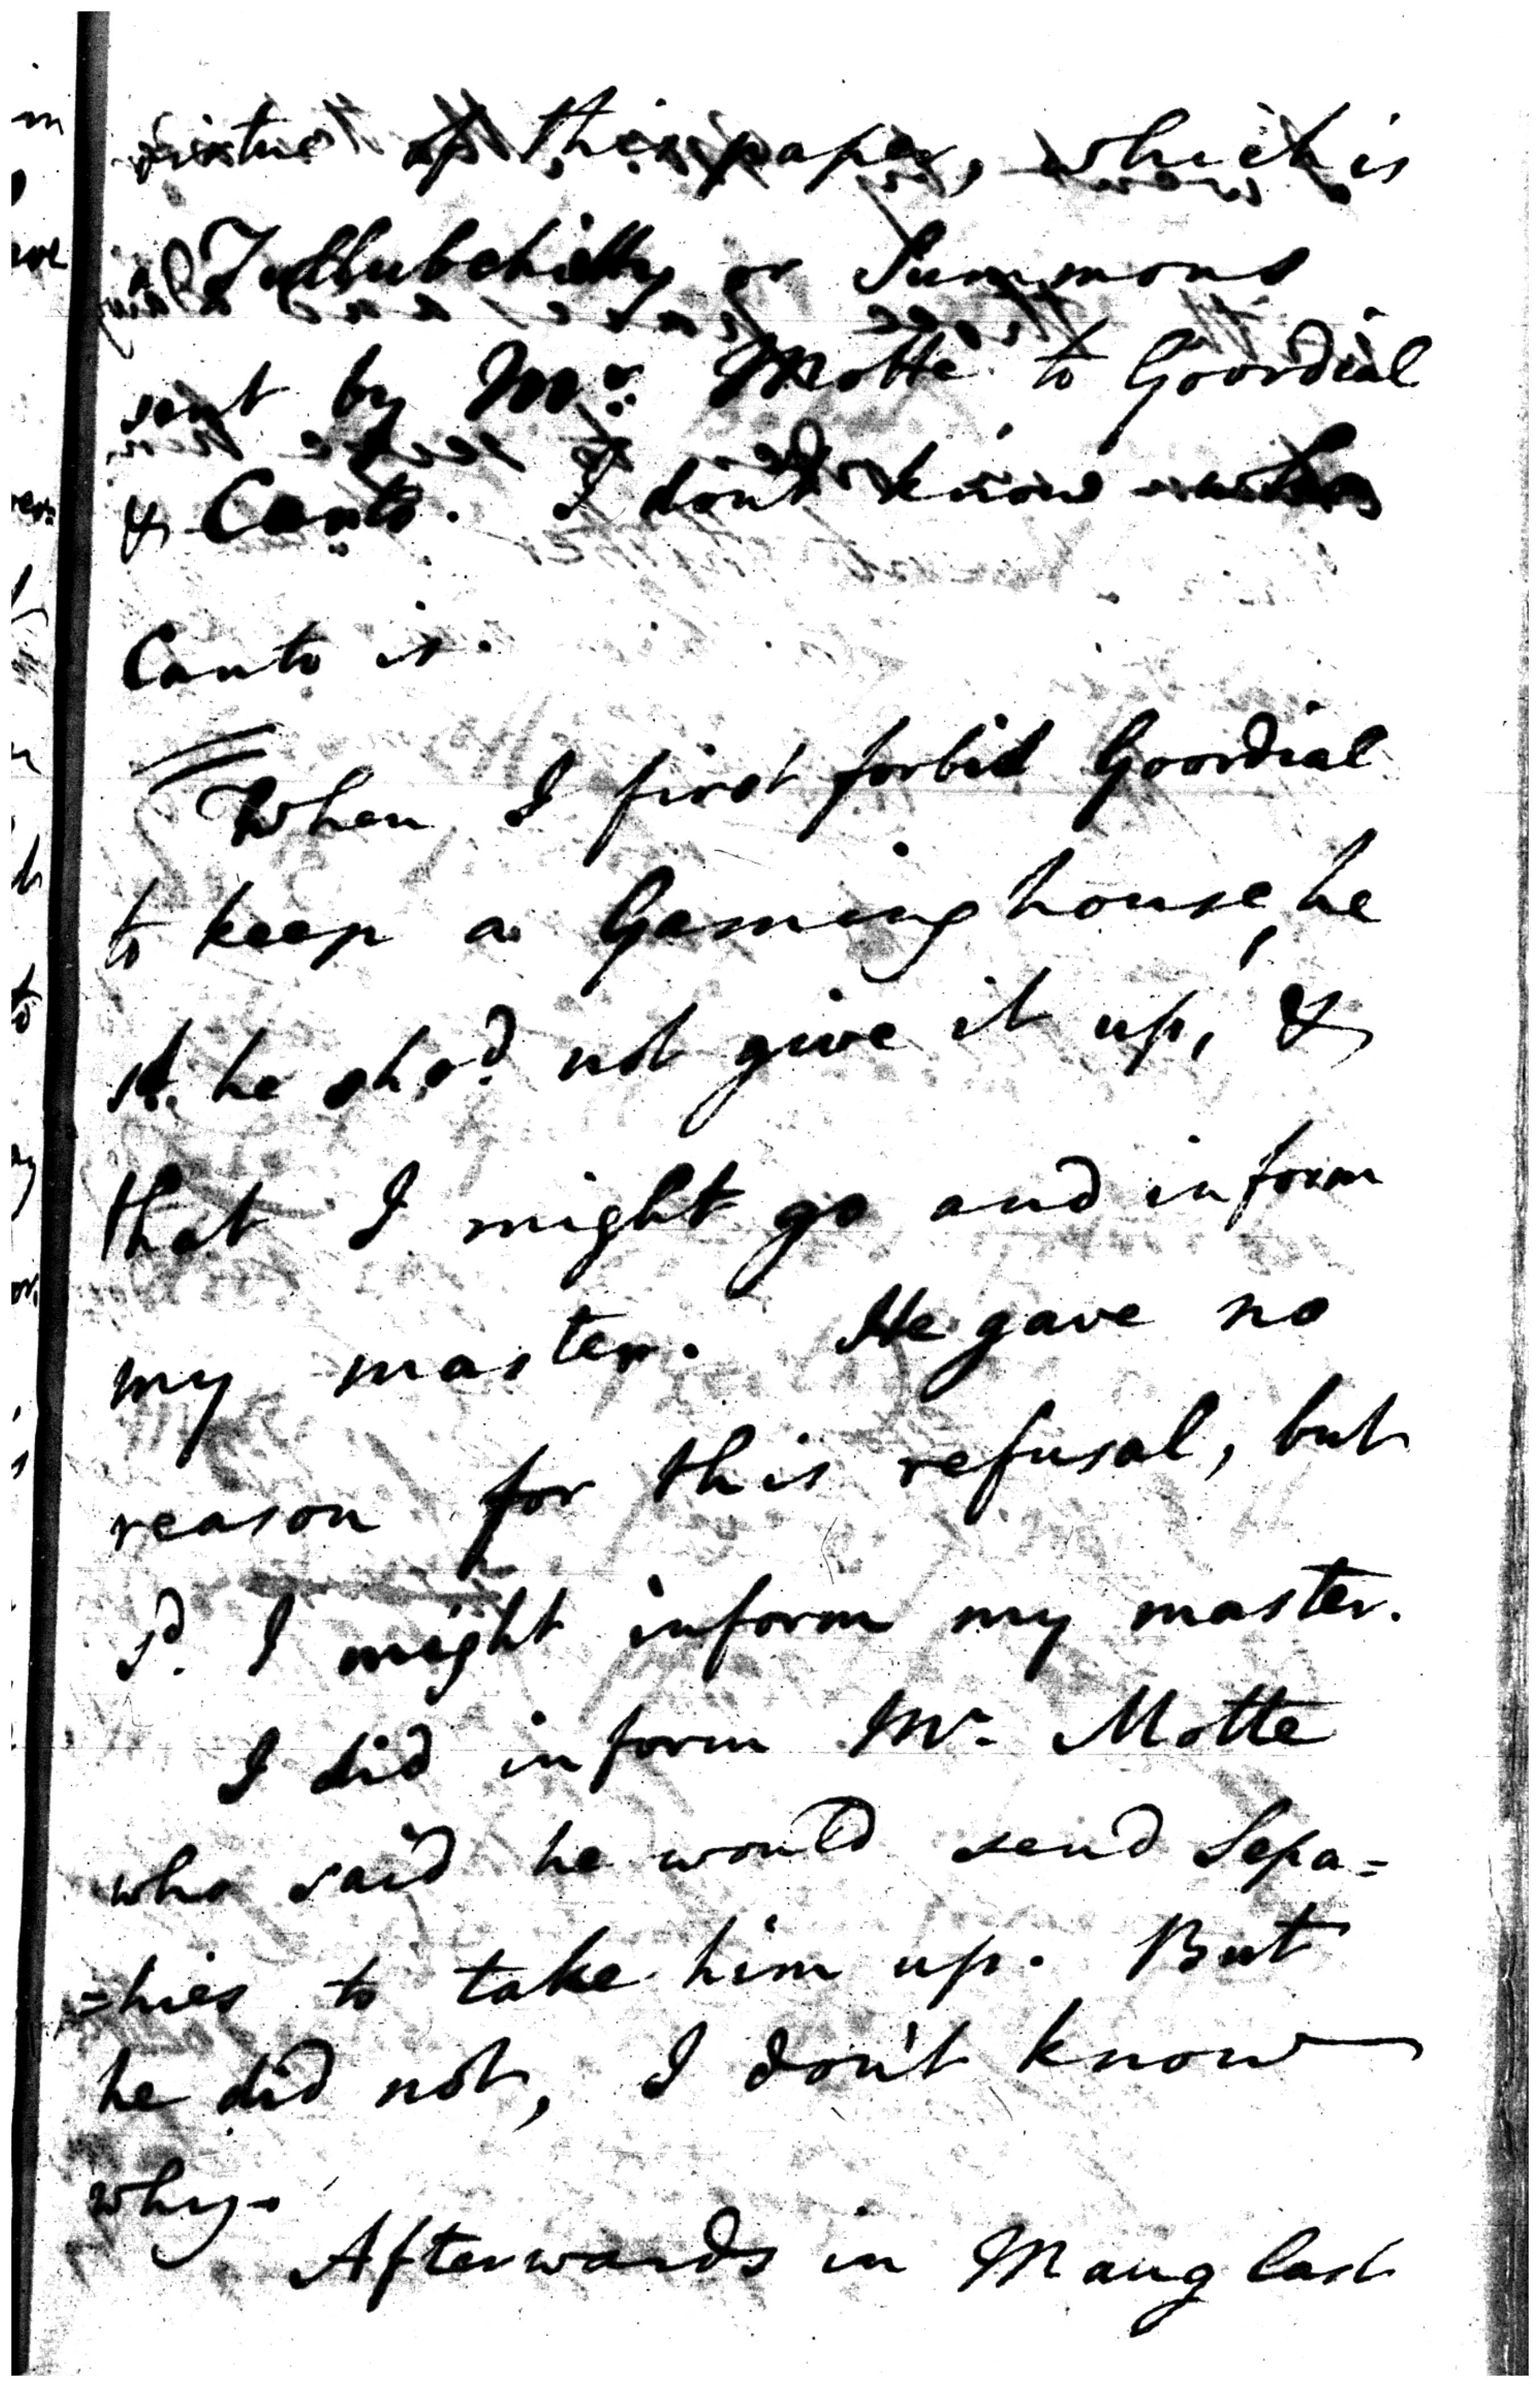 virtue of this paper, which is
a Tullubchitty or Summons
sent by Mr. Motte to Goordial
& Canto. I don't know who
Canto is.
When I first forbid Goordial
to keep a Gaming house, he
sd. he shod. not give it up, &
that I might go and inform
my master. He gave no
reason for this refusal, but
sd. I might inform my master.
I did inform Mr. Motte
who said he would send Sepa=
=hies to take him up. But
he did not, I don't know
why.
Afterwards in Maug last